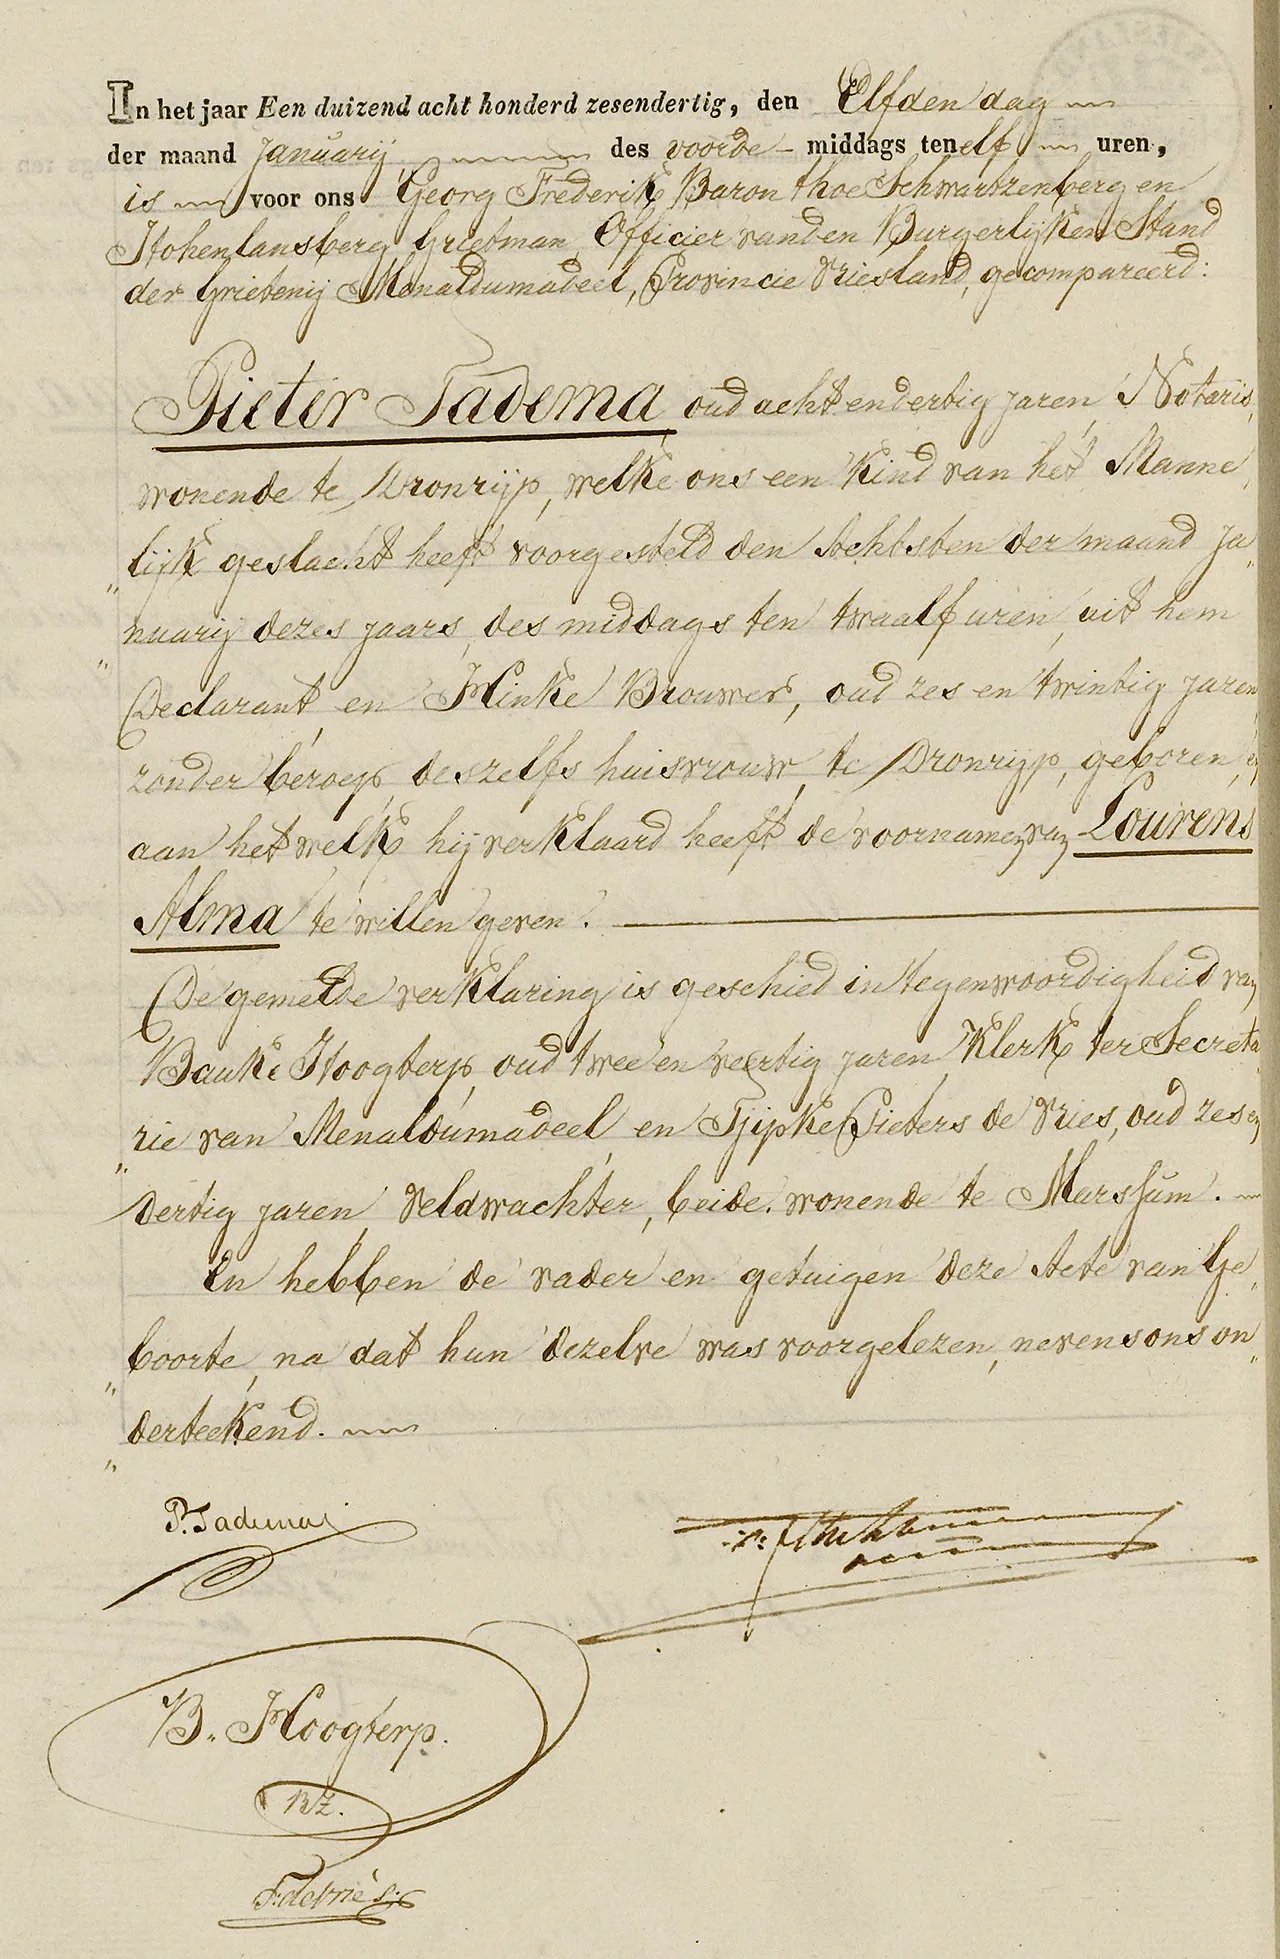 In het jaar Een duizend acht honderd zesendertig, den Elfden dag
der maand Januarij des voorde- middags ten elf uren,
is voor ons Georg Frederik Baron thoe Schwartzenberg en
Hohenlansberg Grietman Officier van den Burgerlijken Stand
der Grietenij Menaldumadeel, Provincie Vriesland, gecompareerd:
Pieter Tadema oud acht en dertig jaren, Notaris,
wonende te Dronrijp, welke ons een Kind van het Manne
lijk geslacht heeft voorgesteld den Achtsten der maand Ja„
„nuarij dezes jaars, des middags ten twaalf uren, uit hem
„Declarant en Hinke Brouwer, oud zes en twintig jaren,
zonder beroep deszelfs huisvrouw, te Dronrijp, geboren, en
aan het welk hij verklaard heeft de voornamen van Lourens
Alma te willen geven.
De gemelde verklaring is geschied in tegenwoordigheid van
Bauke Hoogterp, oud twee en veertig jaren Klerk ter Secreta„
rie van Menaldumadeel, en Tjipke Pieters de Vries, oud zes en
„dertig jaren, Veldwachter, beide wonende te Marssum.
En hebben de vader en getuigen deze Acte van Ge„
boorte, na dat hun dezelve was voorgelezen, nevens ons on„
„derteekend.
P. Tadema
B. Hoogterp.
BZ.
T. de Vries